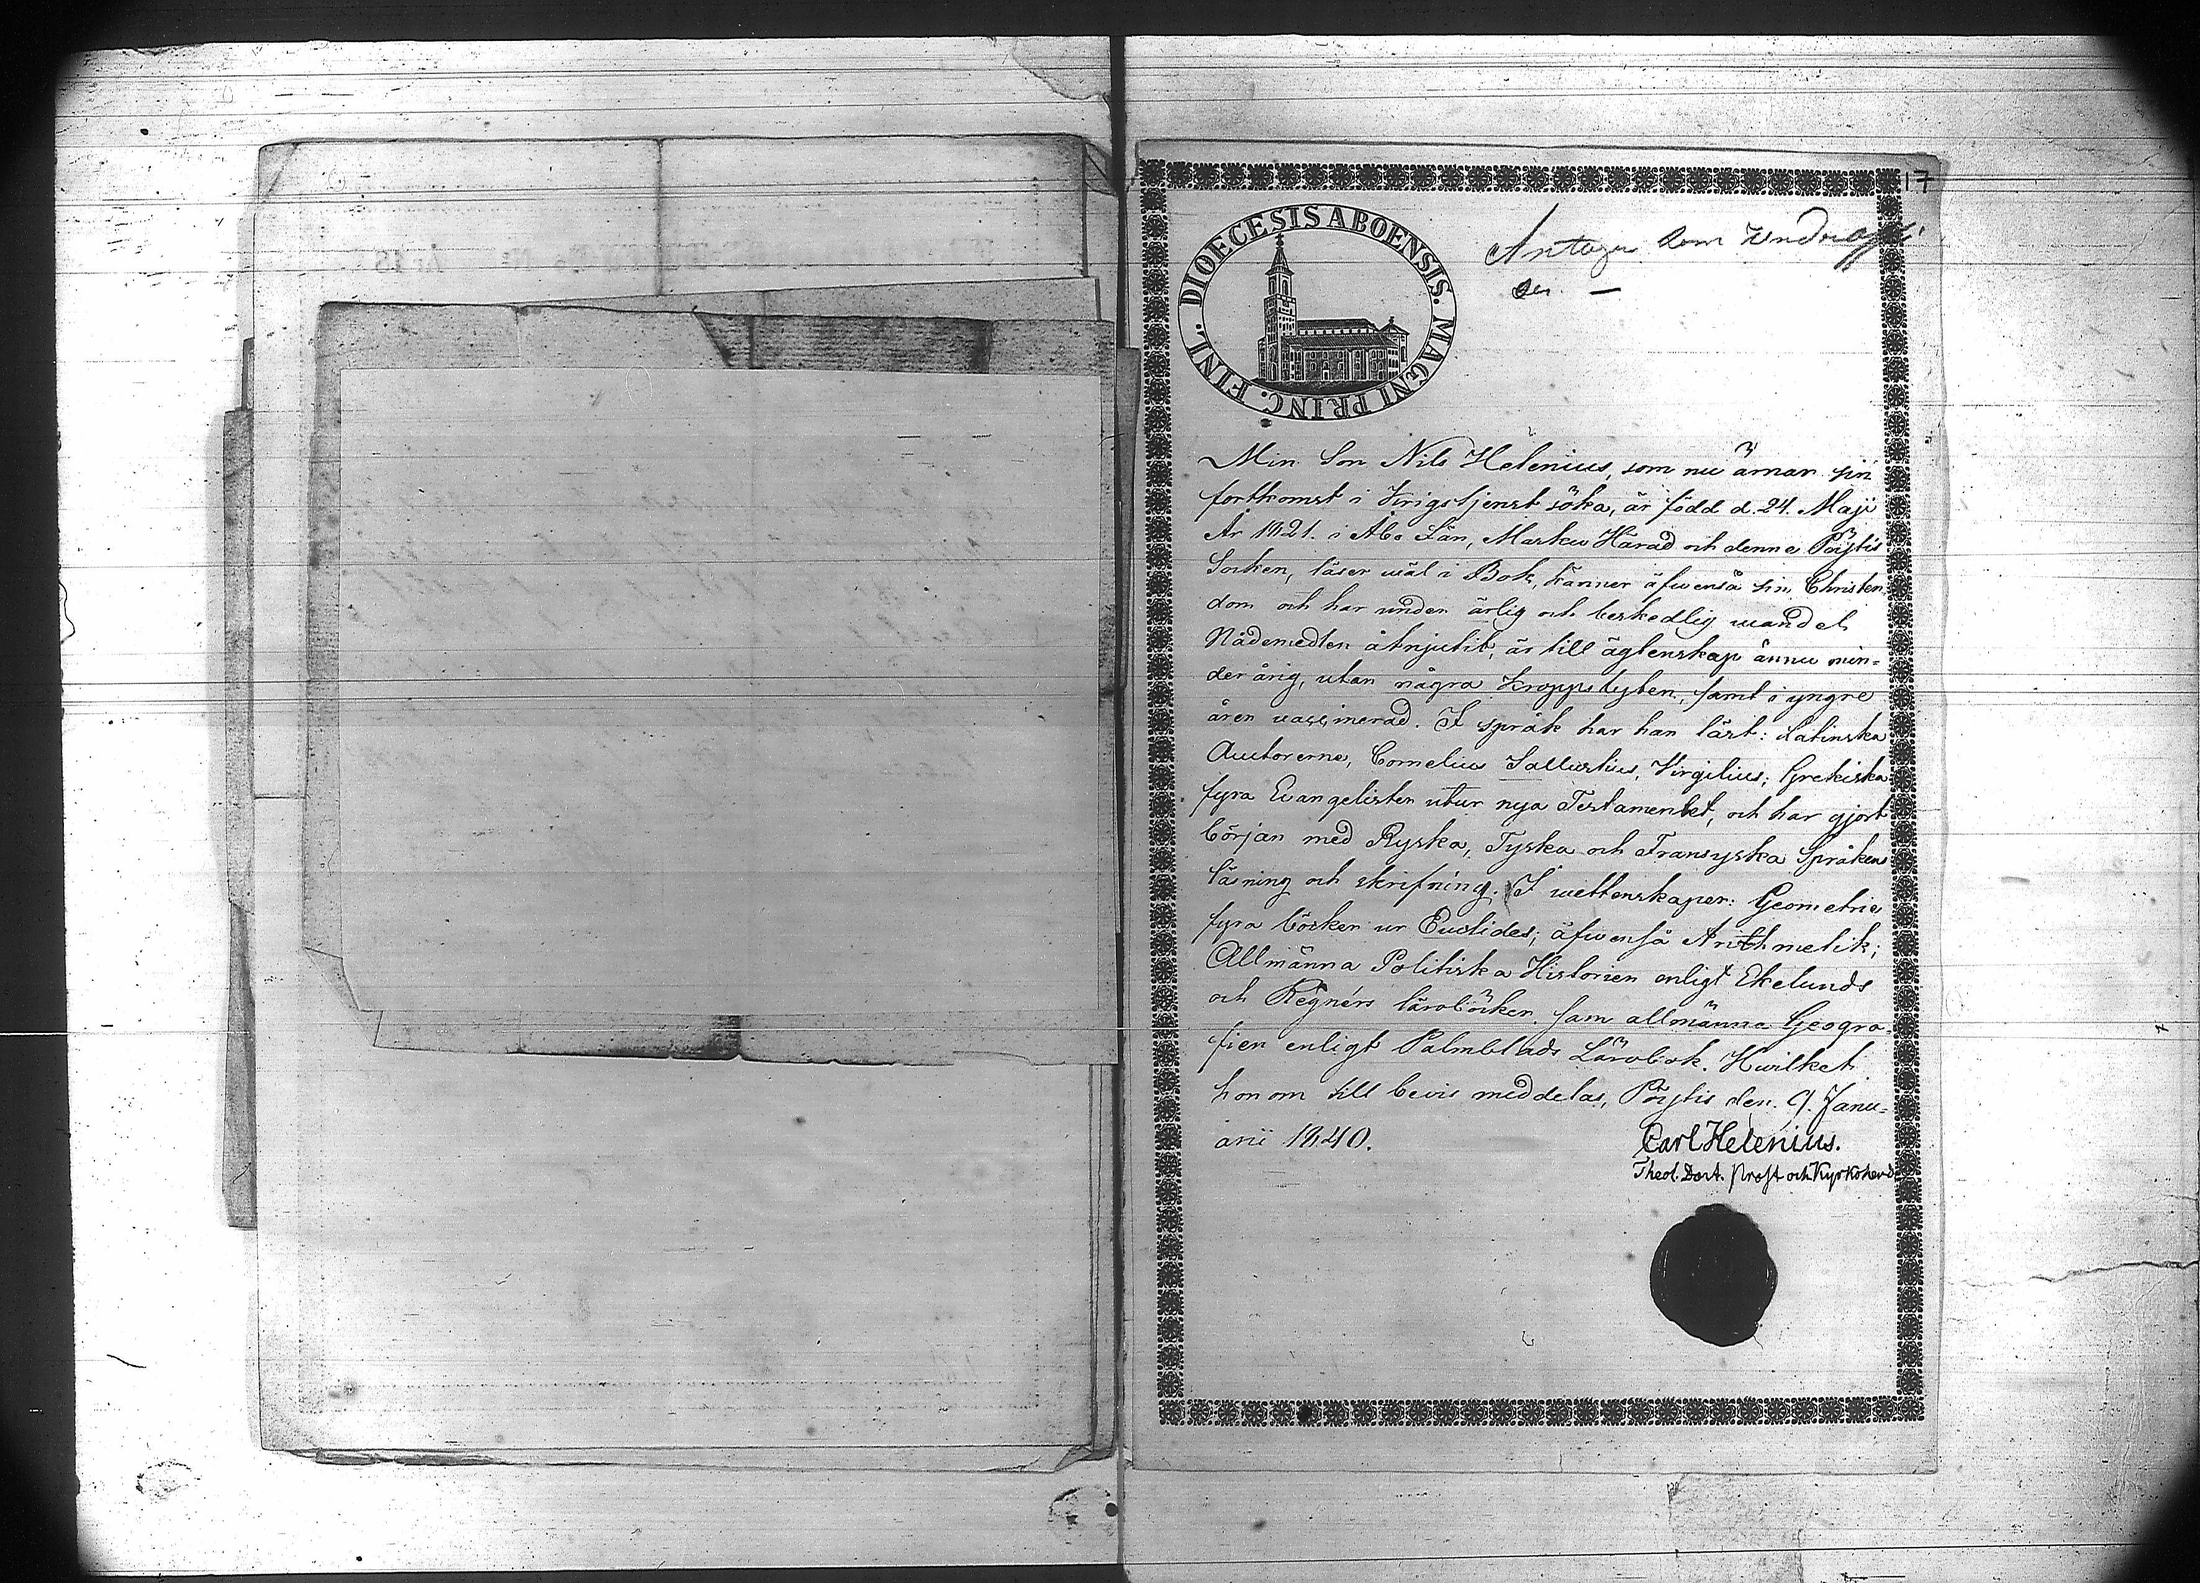 17
DIOECESIS ABOENSIS. MAGNI PRINC. FINL.
Antages som Underoffi-
cer. —
Min Son Nils Helenius, som nu ärnar sin
fortkomst i Krigstjenst söka, är född d. 24. Maji
År 1821. i Åbo Län, Masku Härad och denne Pöytis
Socken, läser wäl i Bok, känner äfwenså sin Christen
dom och har under ärlig och beskedlig wandel
Nådemedlen åtnjutit, är till ägtenskap ännu min-
derårig, utan några kroppslyten, samt i yngre
åren vaccinerad. I språk har han läst: Latinska
Auctorerne, Cornelius Sallustius, Virgilius; Grekiska
fyra Evangelister utur nya Testamentet, och har gjort
början med Ryska, Tyska och Fransyska Språkens
läsning och skrifning. I wettenskaper: Geometrie
fyra böcker ur Euclides; äfwenså Arithmetik;
Allmänna Politiska Historien enligt Ekelunds
och Regnérs läroböcker, sam allmänna Geogra-
fien enligt Palmblads Lärobok. Hwilket
honom till bevis meddelas, Pöytis den 9. Janu-
arii 1840.
Carl Helenius.
Theol. Doct. Prost och Kyrkoherde